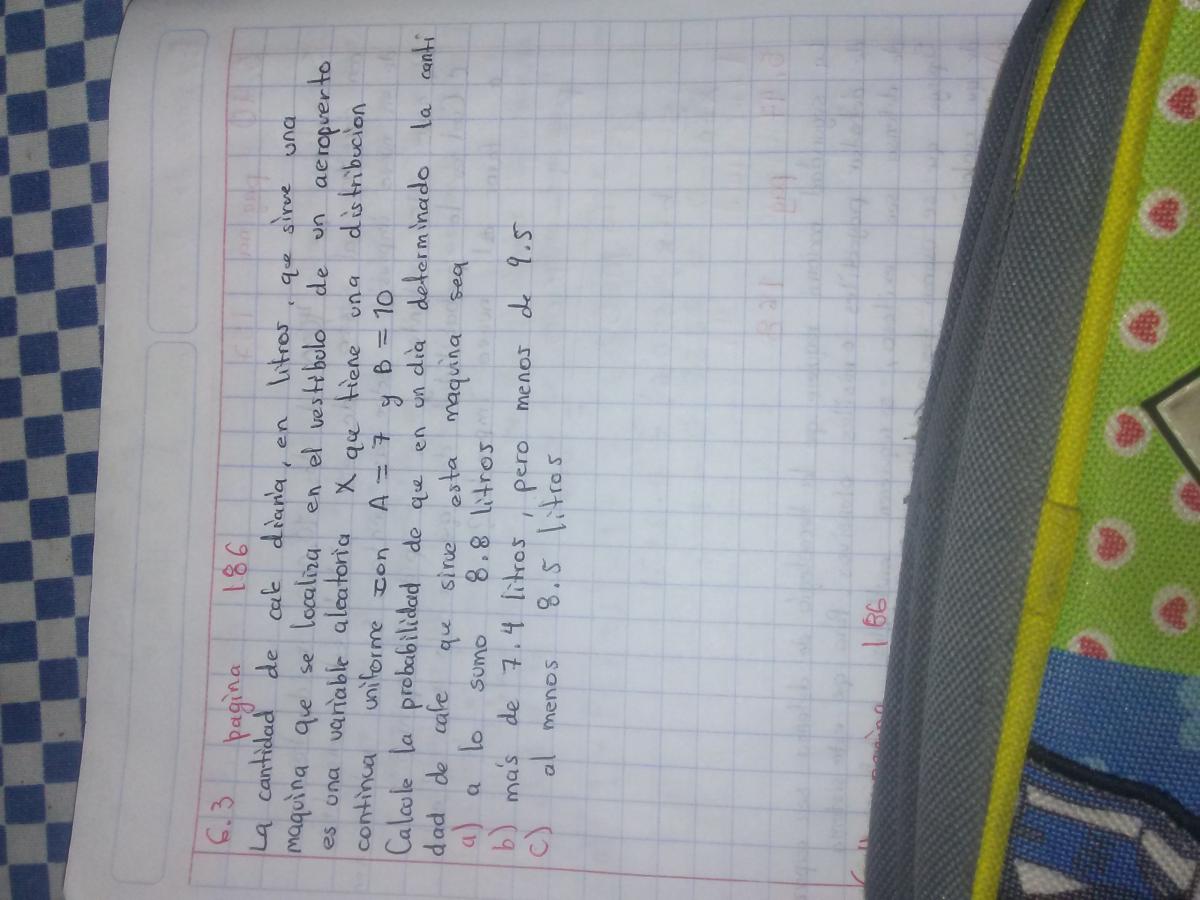 6.3 pagina 186
La cantidad de cafe diaria, en litros, que sirve una
maquina que se localiza en el vestibulo de un aeropuerto
es una variable aleatoria X que tiene una distribución
continua uniforme con A = 7 y B = 10
Calcule la probabilidad de que en un dia determinado la canti
dad de cafe que sirve esta maquina sea
a) a lo sumo 8.8 litros
b) más de 7.4 litros, pero menos de 9.5
c) al menos 8.5 litros
186